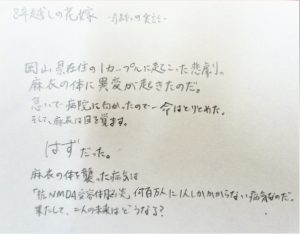 8年越しの花嫁
-奇跡の実話-
岡山県在住の1カップルに起こった悲劇。
麻衣の体に異変が起きたのだ。
急いで病院に向かったので一命はとりとめた。
そして、麻衣は目を覚ます。
はずだった。
麻衣の体を襲った病気は
「抗NMDA受容体脳炎」何百万人に1人しかかからない病気なのだ。
果たして、二人の未来はどうなる？